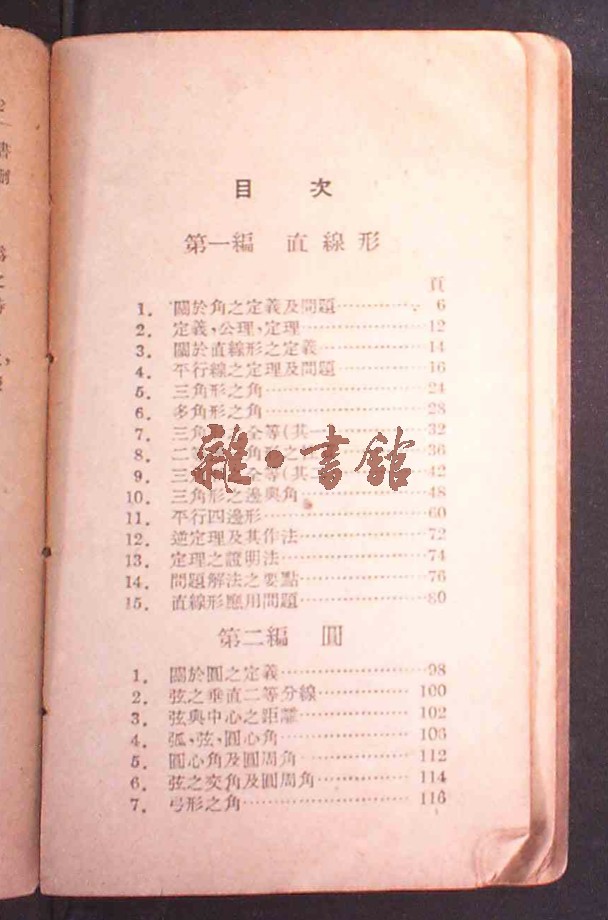 目 次
第一編 直線形
頁
1. 關於角之定義及問題 6
2. 定義、公理、定理 12
3. 關於直線形之定義 14
4. 平行線之定理及問題 16
5. 三角形之角 24
6. 多角形之角 28
7. 三角 全等(其一 32
8. 二等 角形之 36
9. 三 全等(其 42
10. 三角形之邊與角 48
11. 平行四邊形 60
12. 逆定理及其作法 72
13. 定理之證明法 74
14. 問題解法之要點 76
15. 直線形應用問題 80
雜·書館
第二編 圓
1. 關於圓之定義 98
2. 弦之垂直二等分線 100
3. 弦與中心之距離 102
4. 弧、弦、圓心角 106
5. 圓心角及圓周角 112
6. 弦之交角及圓周角 114
7. 弓形之角 116